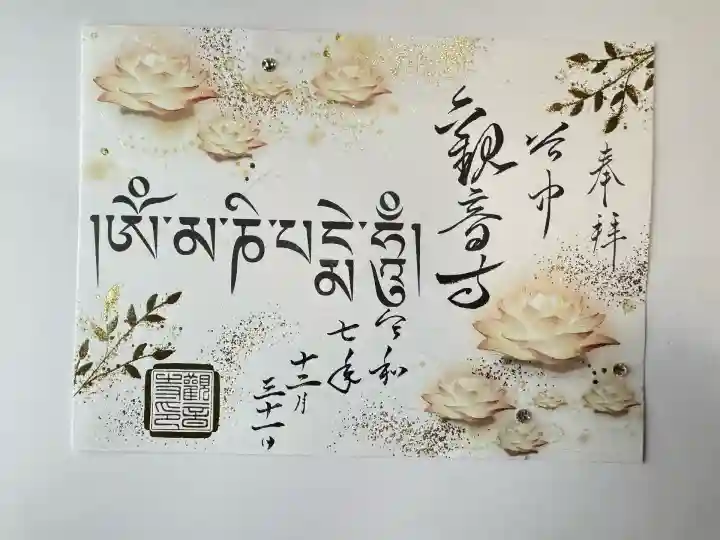 奉拝
谷中
観音寺
།ཨོཾ་མ་ཎི་པ་དྨེ་ཧཱུྃ།
令和
七年
十二月
三十一日
觀音
寺印